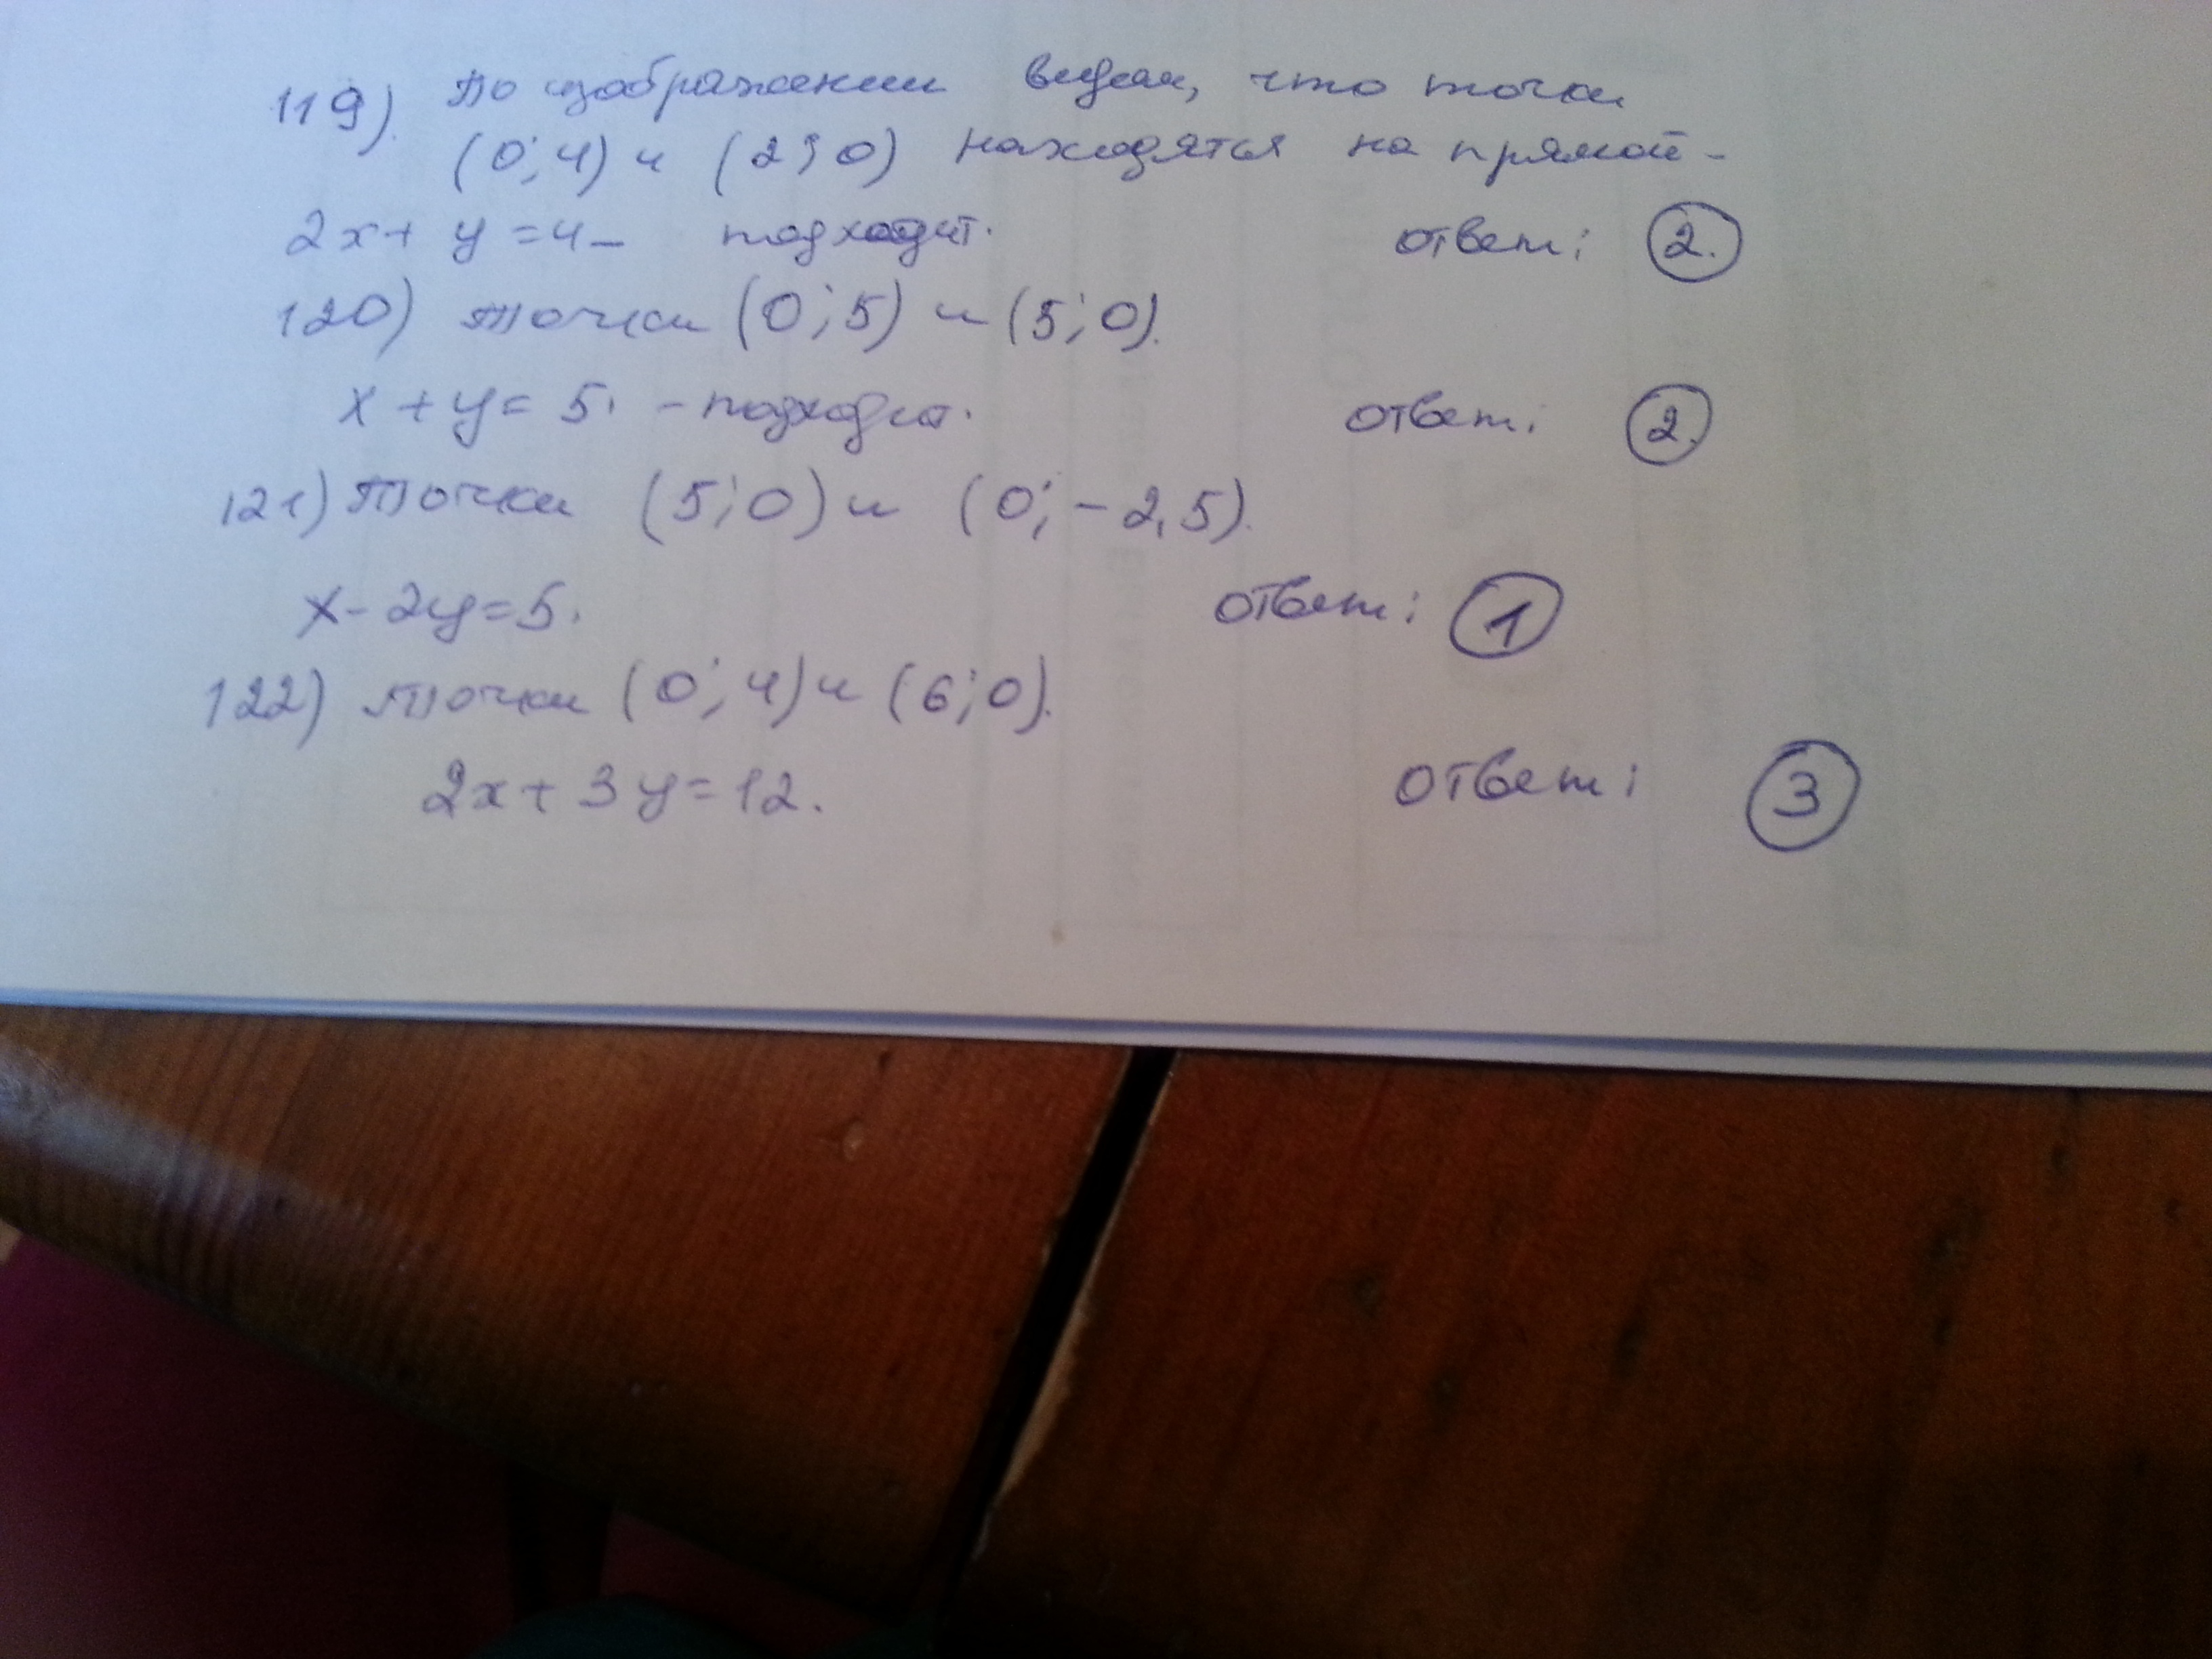 119). По изображении видем, что точки
(0; 4) и (2; 0) находятся на прямой -
2x + y = 4 - подходит. ответ: 2.
120) точки (0; 5) и (5; 0).
x + y = 5. - подходит. ответ: 2.
121) Точки (5; 0) и (0; -2,5).
x - 2y = 5. ответ: 1
122) Точки (0; 4) и (6; 0).
2x + 3y = 12. ответ: 3